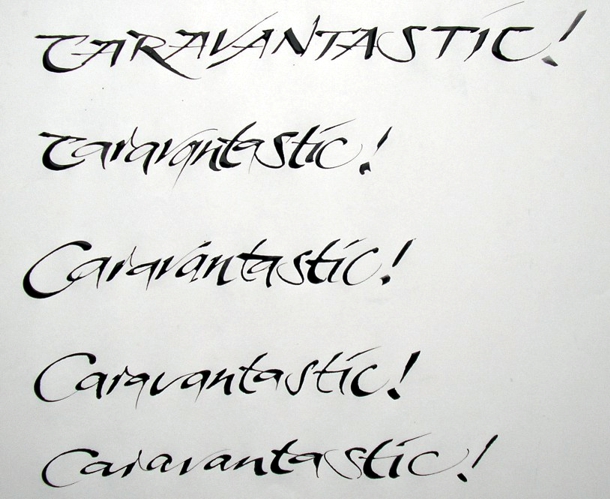 CARAVANTASTIC!
Caravantastic!
Caravantastic!
Caravantastic!
Caravantastic!